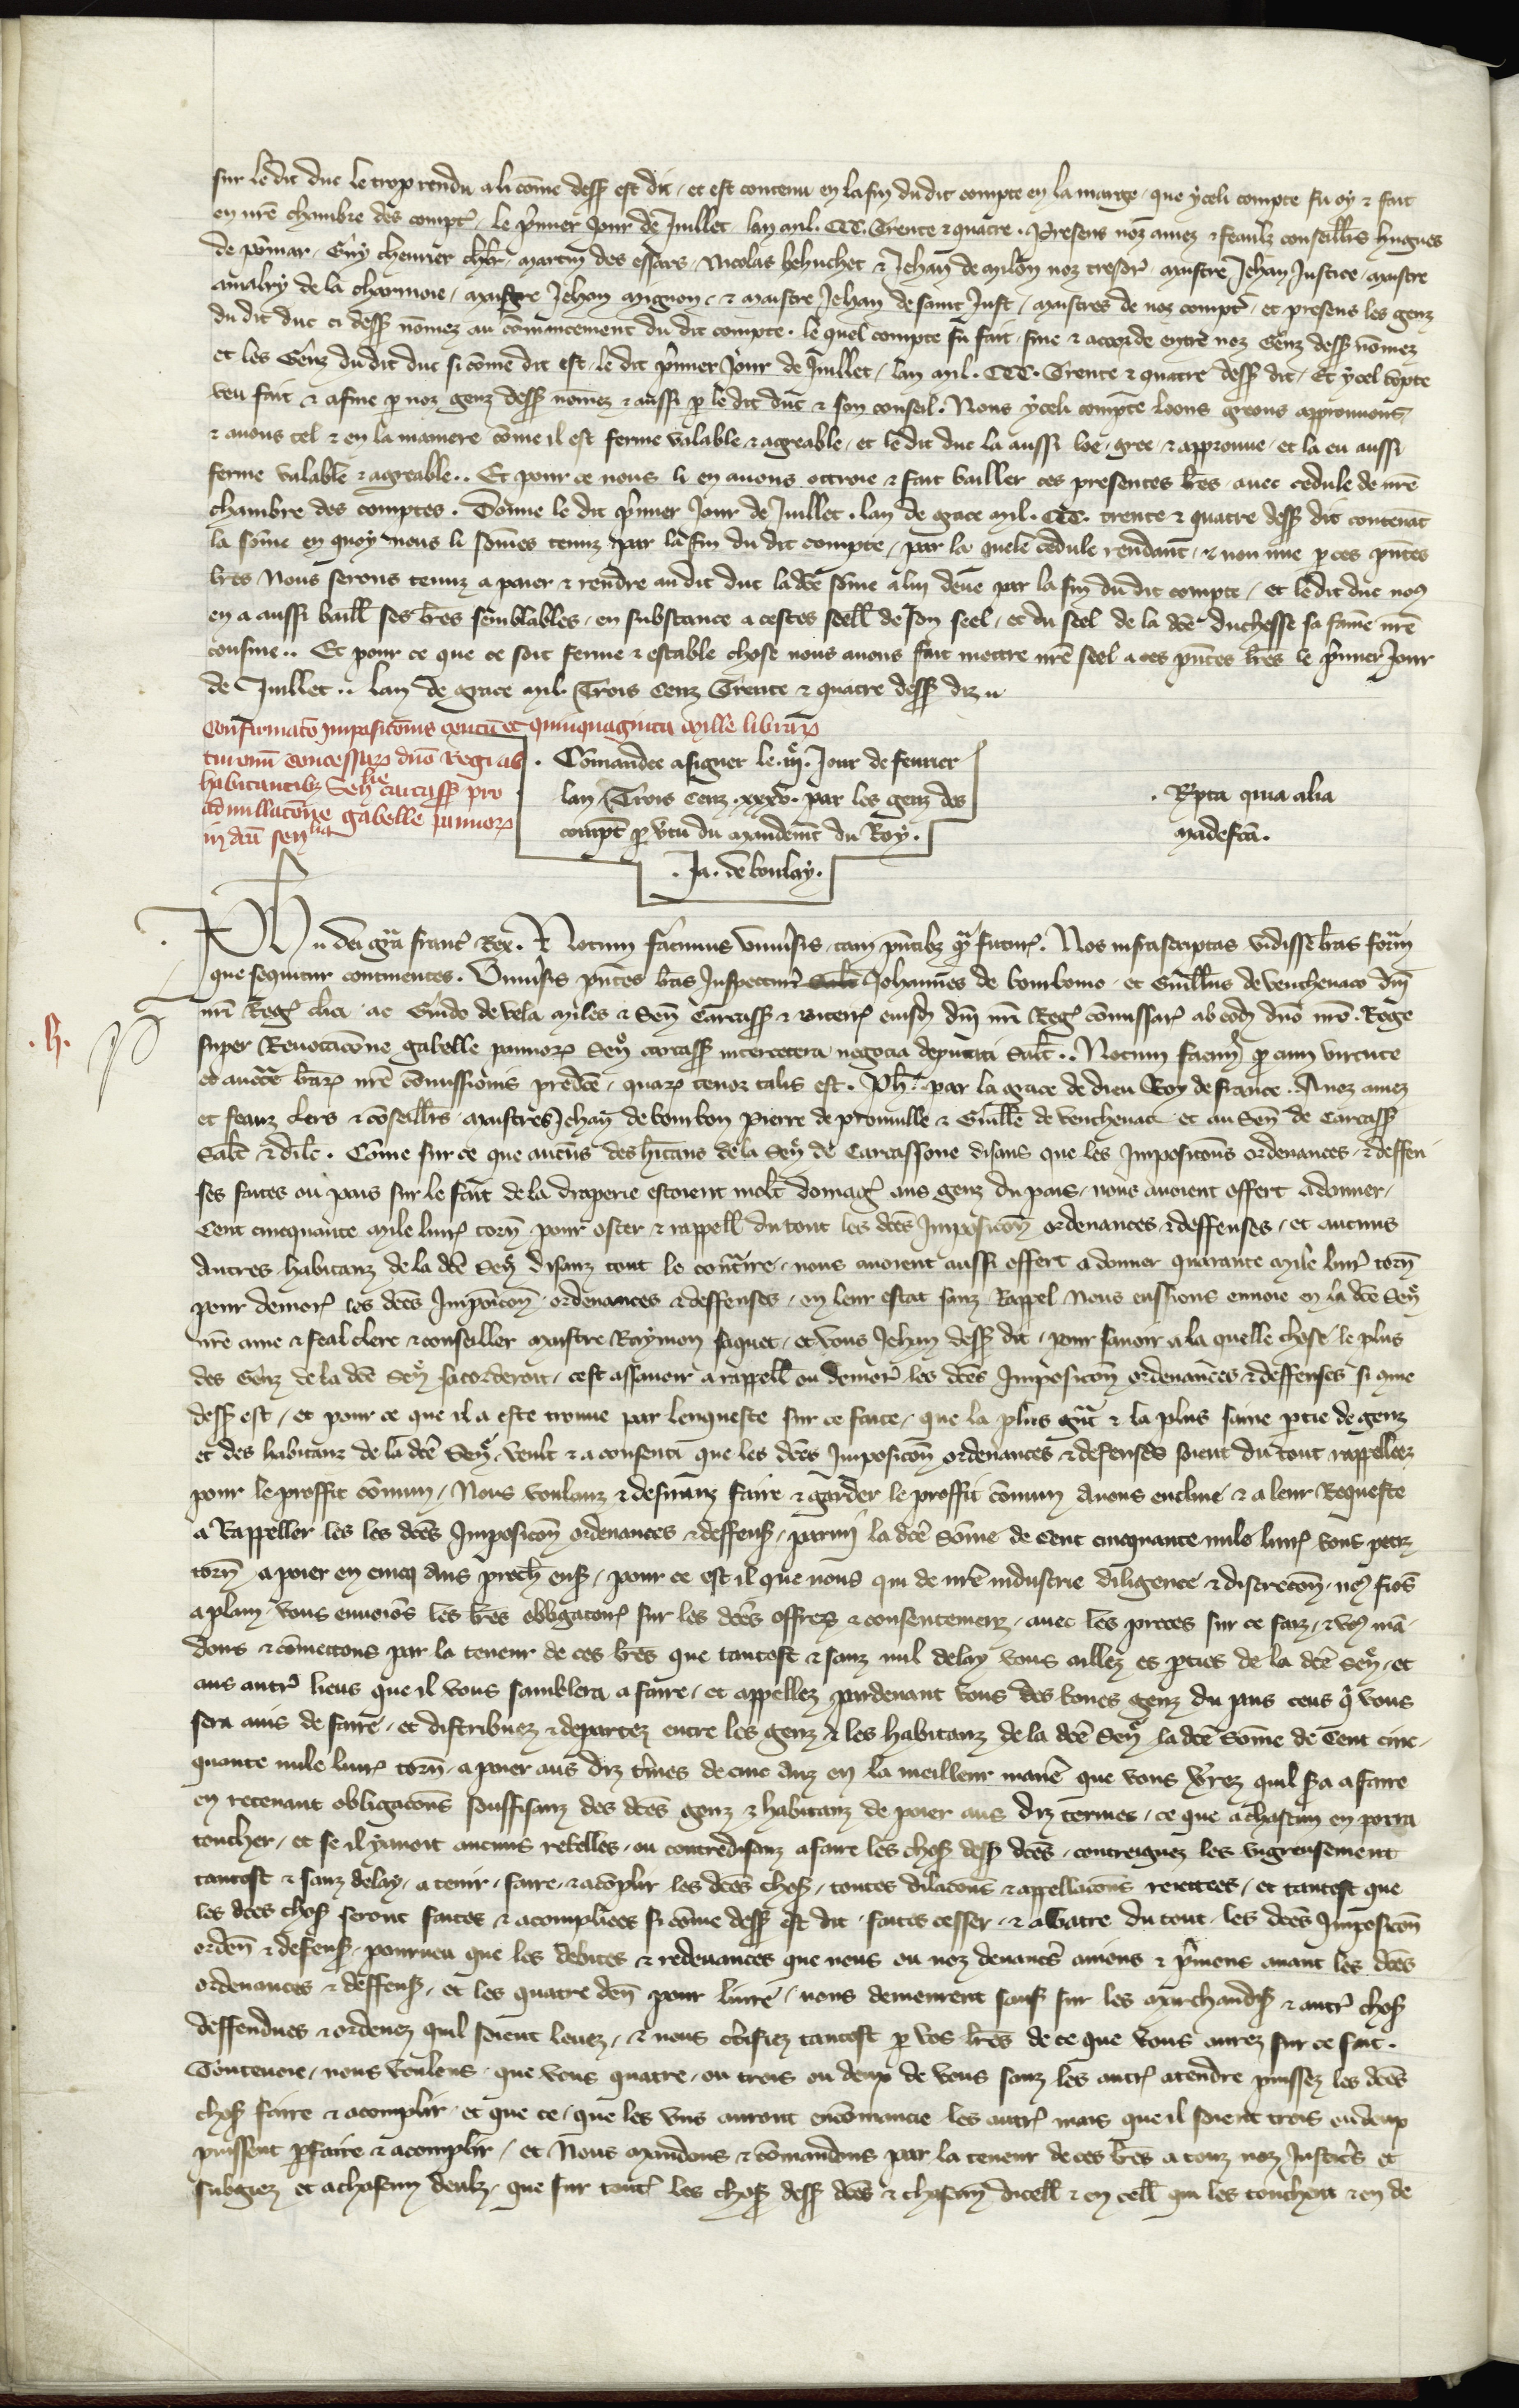 sur le dit duc le trop rendu a li cõme dess⁹ est dit / et est contenu en la fin du dit compte en la marge / que yceli compte fu oy & fait
en nr̃e chambre des compt̃ / le p̃mier Jour de Juillet lan mil. CCC. Trente & quatre . Presens noz amez & feaulz conseill̃rs hugues
de põmar / Guy cheurier ch̃lr / martin des essars / Nicolas behuchet & Jehan de milon noz tresor̃ . maistre Jehan Justice / maistre
amalry de la charmoie / maistre Jehan mignon / & maistre Jehan de saint Just / maistres de noz compt̃ / et presens les genz
du dit duc ci dess⁹ nõmez au cõmancement du dit compte . le quel compte fu fait / fine & accorde entre noz Genz dess⁹ nõmez
et les Genz du dit duc si cõme dit est / le dit p̃mier Jour de Juillet / lan mil . CCC . Trente & quatre dess⁹ dit / Et ycel cõpte
veu fait & afine p noz genz dess⁹ nõmez & aussi p le dit duc & son conseil . Nous yceli compte loons greons approuuons
& auons tel & en la maniere cõme il est ferme valable & agreable / et le dit duc la aussi loe / gree / & approuue / et la eu aussi
ferme valable & agreable .. Et pour ce nous li en auons ottroie & fait bailler ces presentes lr̃es / auec cedule de nr̃e
chambre des comptes . Donne le dit p̃mier Jour de Juillet . lan de grace mil . CCC . trente & quatre dess⁹ dit contenãt
la sõme en quoy nous li sõmes tenuz par la fin du dit compte / par la quele cedule rendant / & non mie p ces p̃ntes
lr̃es Nous serons tenuz a paier & rendre au dit duc la dc̃e sõme a lui deue par la fin du dit compte / et le dit duc no⁹
en a aussi baill̃ ses lr̃es semblables / en substance a cestes seell̃ de son seel / et du seel de la dc̃e duchesse sa fame nr̃e
cousine .. Et pour ce que ce soit ferme & estable chose nous auons fait mettre nr̃e seel a ces p̃ntes lr̃es le p̃mier Jour
de Juillet .. lan de grace mil Trois Cenz Trente & quatre dess⁹ diz
Confirmatõ Imposicõnis centũ et quinquaginta mille librar̃
turonñ concessar̃ dño Regi ab
habitantibz Senlie carcass̃ pro
adnullacõne gabelle pannor̃
in dc̃a senlia
. Cõmandee a signer le . iij . Jour de feurier
lan Trois Cenz . xxxv . par les genz des
compt̃ p v̾tu du mandemt̃ du Roy .
. Ja . de boulay .
. Rp̃ta quia alia
mãdefc̃a .
.h.
Ph̃ dei gr̃a franc̃ Rex . Notum facimus vniu̾sis / tam p̃ntibz q̃ futur̃ . Nos infrascriptas vidisse lr̃as formã
que sequitur continentes . Vniu̾sis p̃ntes lr̃as Inspectur̃ Johannes de borbonio / et Guill̃us de venchenaco dñi
nr̃i Reg̃ cl̃ici / ac Guido de vela miles & Señ Carcass̃ & biterr̃ eiusd̃ dñi nr̃i Reg̃ cõmissar̃ ab eod̃ dño nr̃o Rege
super Reuocacõne gabelle pannor̃ Señ carcass̃ inter cetera negocia deputati Salt̃ .. Notum facim⁹ q̃ cum virtute
et auctt̃e lr̃ar̃ nr̃e cõmissionis predc̃e / quar̃ tenor talis est . Ph̃ . par la grace de dieu Roy de france . A noz amez
et feauz clers & cõseill̃rs / maistres Jehan de bourbon Pierre de prouuille & Guill̃e de venchenac et au Señ de Carcass̃
Sal̃t & dil̃c . Cõme sur ce que aucuns des h̃itans de la Señ de Carcassone disans que les Imposicõns ordenances / & deffen
ses faites ou pais sur le fait de la draperie estoient mol̃t domag̃ aus genz du pais / nous auoient offert a donner /
Cent cinquante mile liur̃ torñ pour oster & rappell̃ du tout les dc̃es Imposicõñ ordenances & deffenses / et aucuns
autres habitanz de la dc̃e Señ disanz tout le contraire / nous auoient aussi offert a donner quarante mile liur̃ torñ
pour demor̃ les dc̃es Imposicõñ ordenances & deffenses / en leur estat sanz Rappel Nous eussions enuoie en la dc̃e Señ
nr̃e ame & feal clerc & conseiller maistre Raymon saquet / et vous Jehan dess⁹ dit / pour sauoir a la quelle chose / le plus
des Genz de la dc̃e Señ sacorderoit / cest assauoir a rappell̃ ou demor̃ les dc̃es Imposicõñ ordenances & deffenses si cõme
dess⁹ est / et pour ce que il a este trouue par lenqueste sur ce faite / que la plus gñt & la plus saine p̃tie de genz
et des habitanz de la dc̃e Señ / veult & a consenti que les dc̃es Imposicõñ ordenances & defenses soient du tout rappellees
pour le proffit cõmun / Nous voulanz & desirranz faire & garder le proffit cõmun auons encline & a leur Requeste
a Rappeller les les dc̃es Imposicõñ ordenances & deffens⁹ / parmi la dc̃e sõme de Cent cinquante mile liur̃ vous petiz
torñ / a poier en cincq ans proch̃ ens⁹ / pour ce est il que nous qui de nr̃e industrie diligence & discrecõñ / no⁹ fiõs
a plain / vous enuoiõs les lr̃es obligatoir̃ sur les dc̃es offrez & consentemenz / auec les proces sur ce faiz / & vo⁹ mã-
dons & cõmettons par la teneur de ces lr̃es que tantost & sanz nul delay vous aillez es p̃ties de la dc̃e Señ / et
aus autr̃ lieus que il vous samblera a faire / et appellez pardeuant vous des bones genz du pais ceus q̃ vous
sera auis de faire / et distribuez & departez entre les genz & les habitanz de la dc̃e Señ la dc̃e Sõme de Cent cinc-
quante mile liur̃ torñ / a poier aus diz t̃mes de cinc anz en la meilleur manĩe que vous verrez quil sera a faire
en retenant obligacõns souffisanz des dc̃es genz & habitanz de poier aus diz termes / ce que a chascun en porra
toucher / et se il y auoit aucuns rebelles / ou contredisanz a faire les chos⁹ dess⁹ dc̃es / contreignez les vigreusement
tantost & sanz delay / a tenir / faire / & acõplir les dc̃es chos⁹ / toutes dilacõns & appellacõns reiettees / et tantost que
les dc̃es chos⁹ seront faites & acomplies si cõme dess⁹ est dit / faites cesser / & abatre du tout / les dc̃es Imposicõñ
ordeñ & defens⁹ / pourueu que les debites & redeuances que nous ou noz deuanc̃ auions & p̃nions auant les dc̃es
ordenances & deffens⁹ / et les quatre deñ pour liure / nous demeurent sauf sur les marchandis⁹ & autr̃ chos⁹
deffendues & ordenez quil soient leuez / & nous c̃tifiez tantost p vos lr̃es de ce que vous aurez sur ce fait .
Toutenoie / nous voulens / que vous quatre / ou trois ou deux de vous sanz les autr̃ atendre puissez les dc̃es
chos⁹ faire & acomplir / et que ce / que les vns auront encõmancie les autr̃ mais que il soient trois ou deux
puissent p̃faire & acomplir / et Nous mandons & cõmandons par la teneur de ces lr̃es a touz noz Justic̃s et
subgiez et a chascun deulz / que sur tout̃ les chos⁹ dess⁹ dc̃es & chascun dicell̃ & en cell̃ qui les touchent & en de